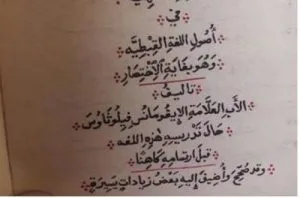 في
أصول اللغة القبطيه
وهو بغاية الاختصار
تاليف
الأب العلامة الإيغومانس فيلوثاوس
حال تدريسه هذه اللغه
قبل ارتسامه كاهنا
وقد صحح واضيف إليه بعض زيادات يسيرة